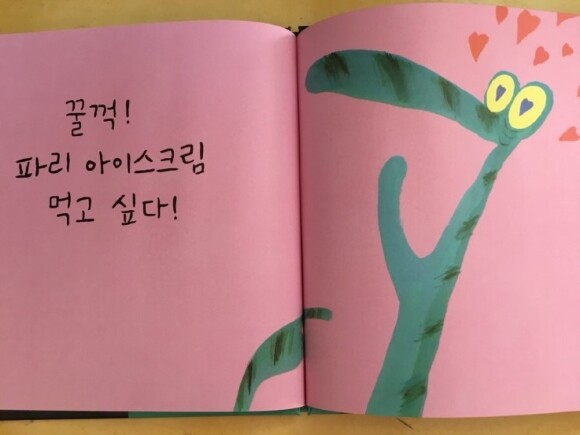 꿀꺽!
파리 아이스크림
먹고 싶다!